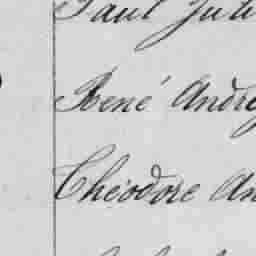 Paul Jul
René André
Théodore An